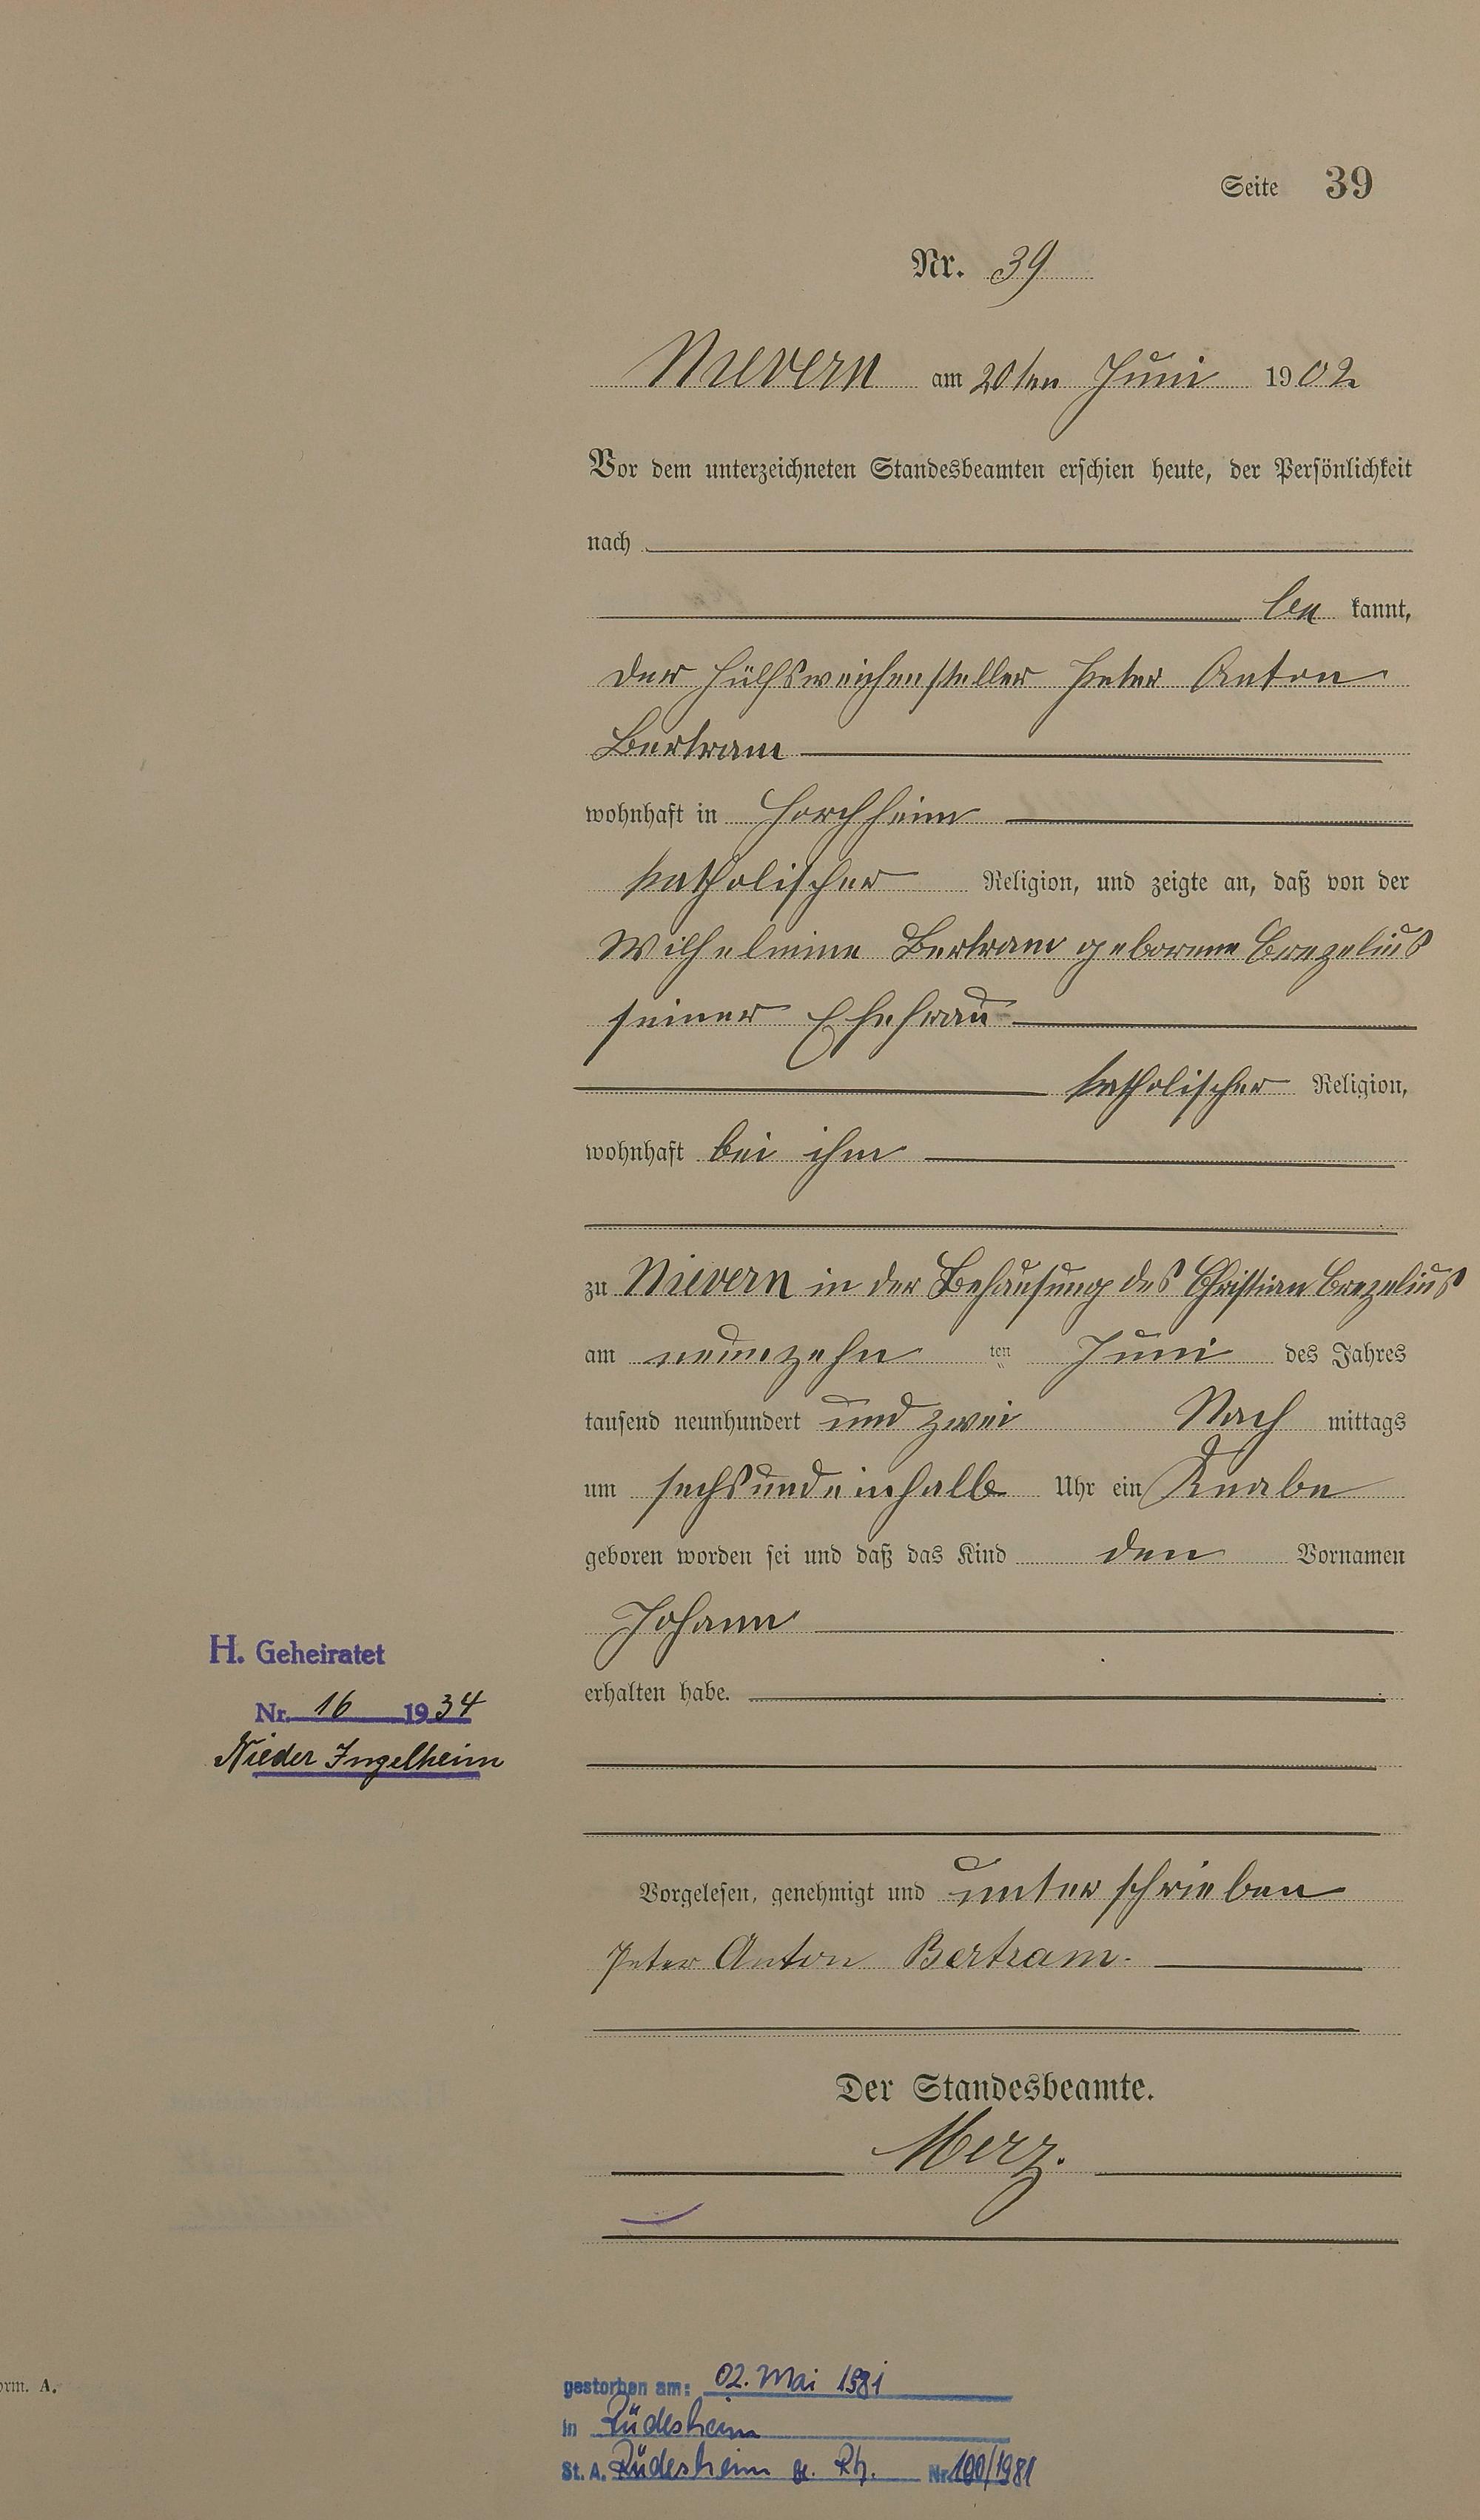 Seite 39
Nr. 39
Nievern am 20ten Juni 1902
Vor dem unterzeichneten Standesbeamten erschien heute, der Persönlichkeit
nach
be kannt,
der Hülfsweichensteller Peter Anton
Bertram
wohnhaft in Horchheim
katholischer Religion, und zeigte an, daß von der
Wilhelmine Bertram geborene
seiner Ehefrau
katholischer Religion,
wohnhaft bei ihm
zu Nievern in der Behausung des Christian
am neunzehn ten Juni des Jahres
tausend neunhundert und zwei Nach mittags
um sechsundeinhalb Uhr ein Knabe
geboren worden sei und daß das Kind den Vornamen
Johann
H. Geheiratet
erhalten habe.
Nr. 16 1934
Nieder Ingelheim
Vorgelesen, genehmigt und unterschrieben
Peter Anton Bertram.
Der Standesbeamte.
Merz.
orm. A.
gestorben am: 02. Mai 1981
in Rüdesheim
St. A. Rüdesheim a. Rh. Nr. 100/1981